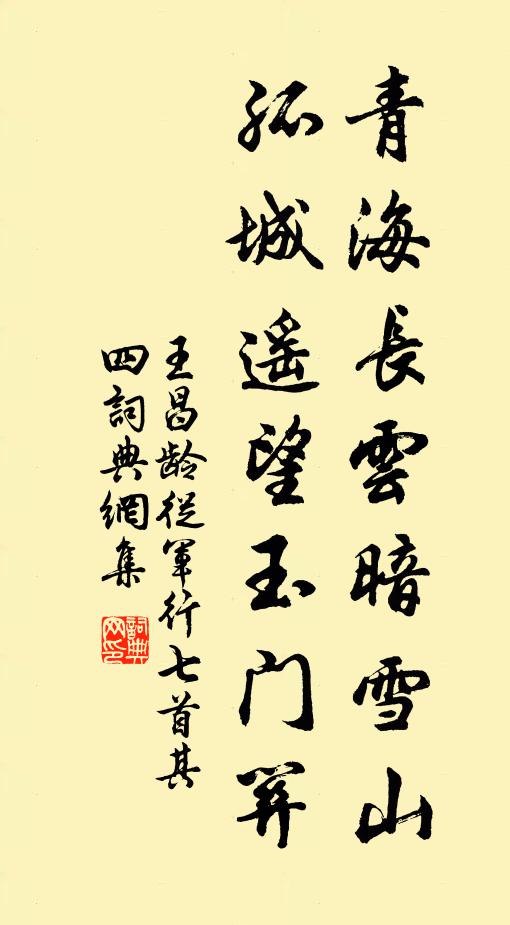 青海長雲暗雪山
孤城遥望玉门关
王昌龄從軍行七首其
四詞典網集
詞典
网印